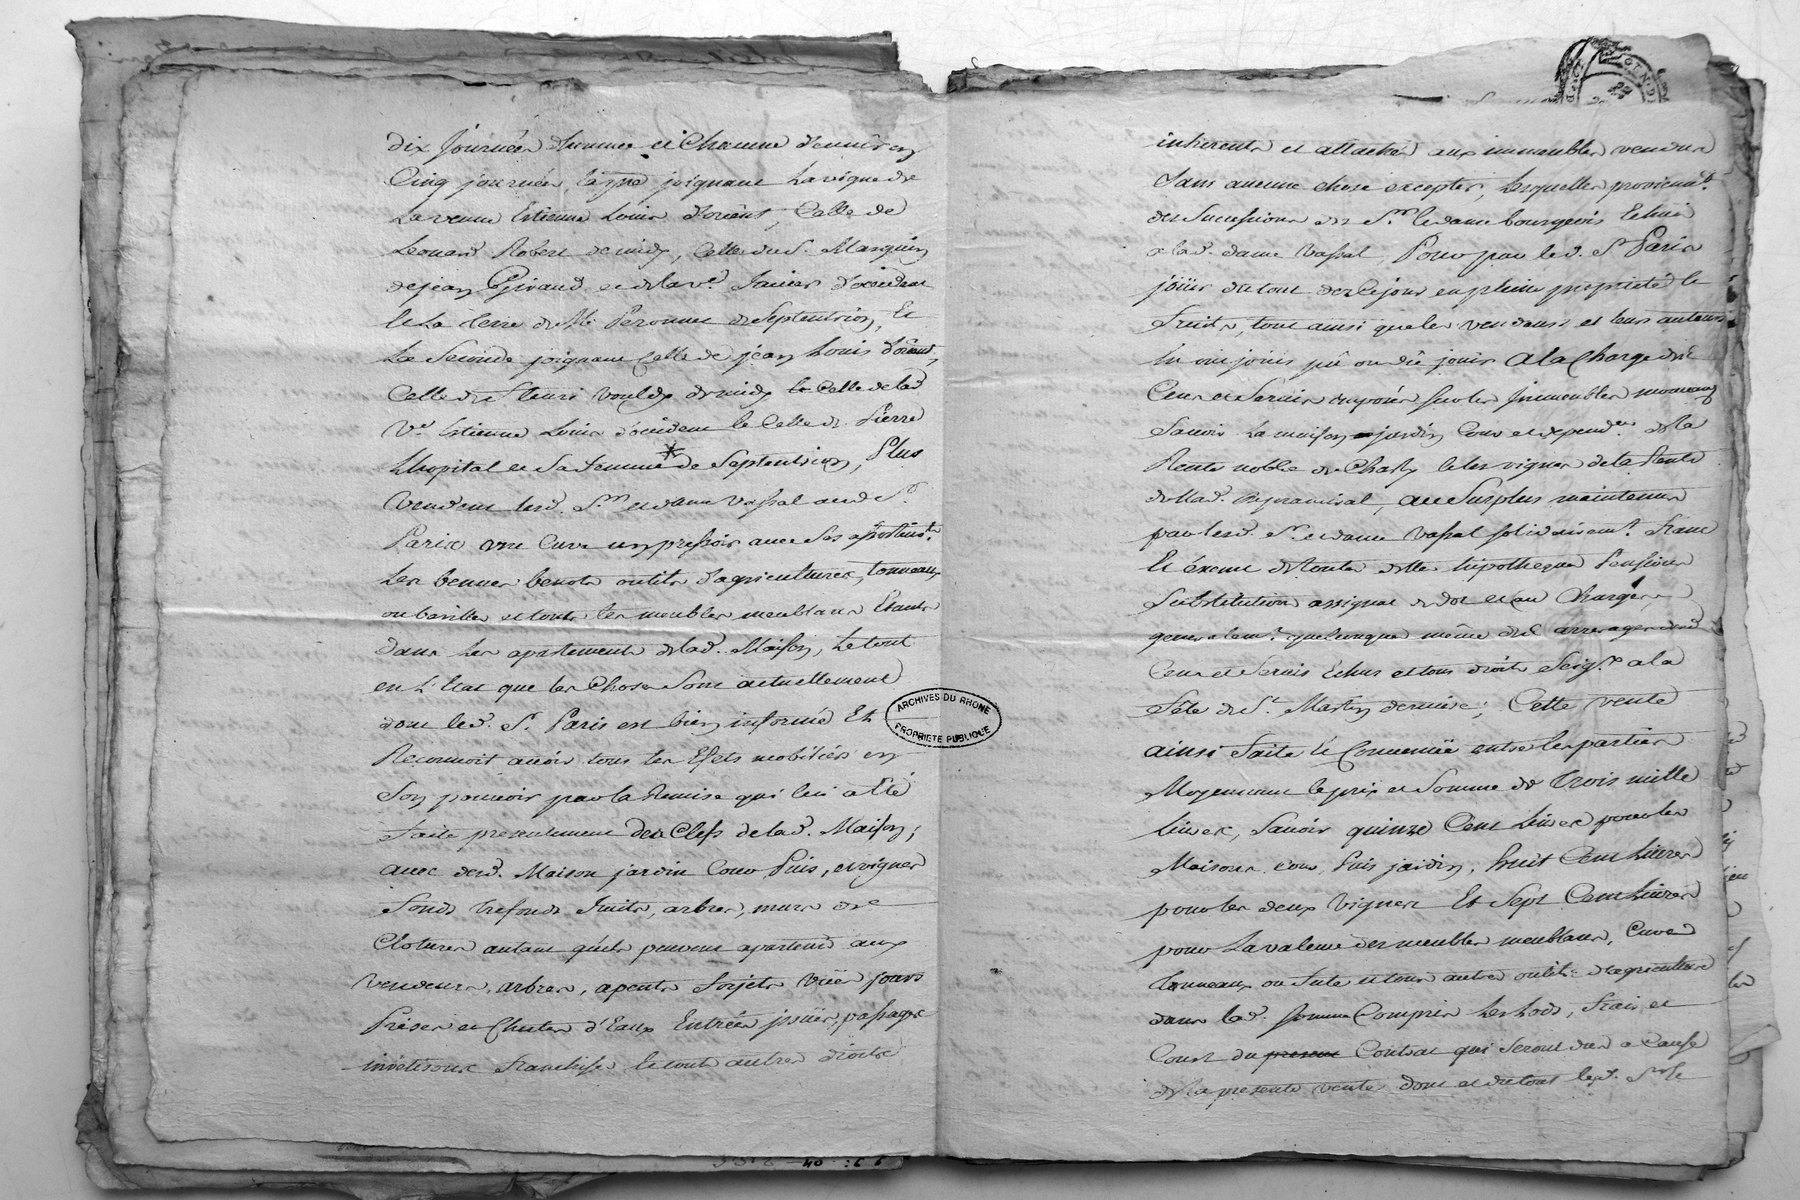 dix journées d'homme et chacune d'environ
Cinq journées, la pre joignant la vigne de
la veuve Estienne Louis d'orient, Celle de
Leonard Robert de midy, Celle du S. Marquis
de jean Giraud et de la ve. Janier d'occident
Et La terre de Me Peronnet de Septentrion, Et
La Seconde joignant Celle de jean Louis d'orient,
Celle de fleuri de midy le Celle de lad
Ve Estienne Louis d'occident le Celle de Pierre
Lhopital et Sa femme * de Septentrion, Plus
Vendent lesd. Sr. et dame Vassal aud Sr.
Paris une Cuve un pressoir avec Ses
Les bennes benots outils d'agricultures, tonneaux
ou barilles et tous les meubles meublans Etants
dans les apartements de lad. Maison, Le tout
en L'Etat que les choses Sont actuellement
dont led. Sr. Paris est bien informé Et
Reconnoit avoir tous les Efets mobiliers en
Son pouvoir par la Remise qui lui a eté
faite presentement des Clefs de lad. Maison,
avec desd. Maison jardin Cour Puis, et vignes
fonds trefonds fruits, arbres, murs de
Clotures autant qu'ils peuvent apartenir aux
Vendeurs, arbres, Vües jours
Prises et Chutes d'Eaux Entrées issües, passages
franchises le tout autres droits
inherents et attachés aux immeubles vendus
Sans aucune chose excepter, lesquelles provienet.
des Successions des Sr. le dame bourgeois Echui
a lad. dame Vassal, Pour par led. Sr Paris
joüir du tout dez le jour en pleine proprieté le
fruits, tout ainsi que les vendeurs et leurs auteurs
En ont jouis pû ou dû jouir A la Charge de
Cens et Servis imposés sur les Immeubles
Savoir La maison jardin Cour et dépendces. de la
Rente noble de Charly le les vignes de la Rente
de Mad. au Surplus maintenus
par lesd. Sr. et dame Vassal solidairemt. francs
Et exemt de toute dette hipotheque Pensions
Substitution assignat de dot et au Charges
generalemt. quelconques même des arrerages
Cens et Servis Echus et tous droits Seigx a la
fête de St. Martin derniere; Cette vente
ainsi faite Et Convenüe entre les parties
Moyennant le prix et Somme de Trois mille
livres, Savoir quinze Cent Livres pour les
Maisons cour Puis jardin, huit Cent Livres
pour les deux Vignes Et Sept Cent Livres
pour La valeur des meubles meublans, Cuves
Tonneaux ou futs et tous autres outils d'agriculture
dans lad. Somme Compris Les Lods, frais et
Cout du present Contrat qui Seront dus a Cause
de la presente vente dont et du tout led. Sr le
ARCHIVES DU RHONE
PROPRIETE PUBLIQUE